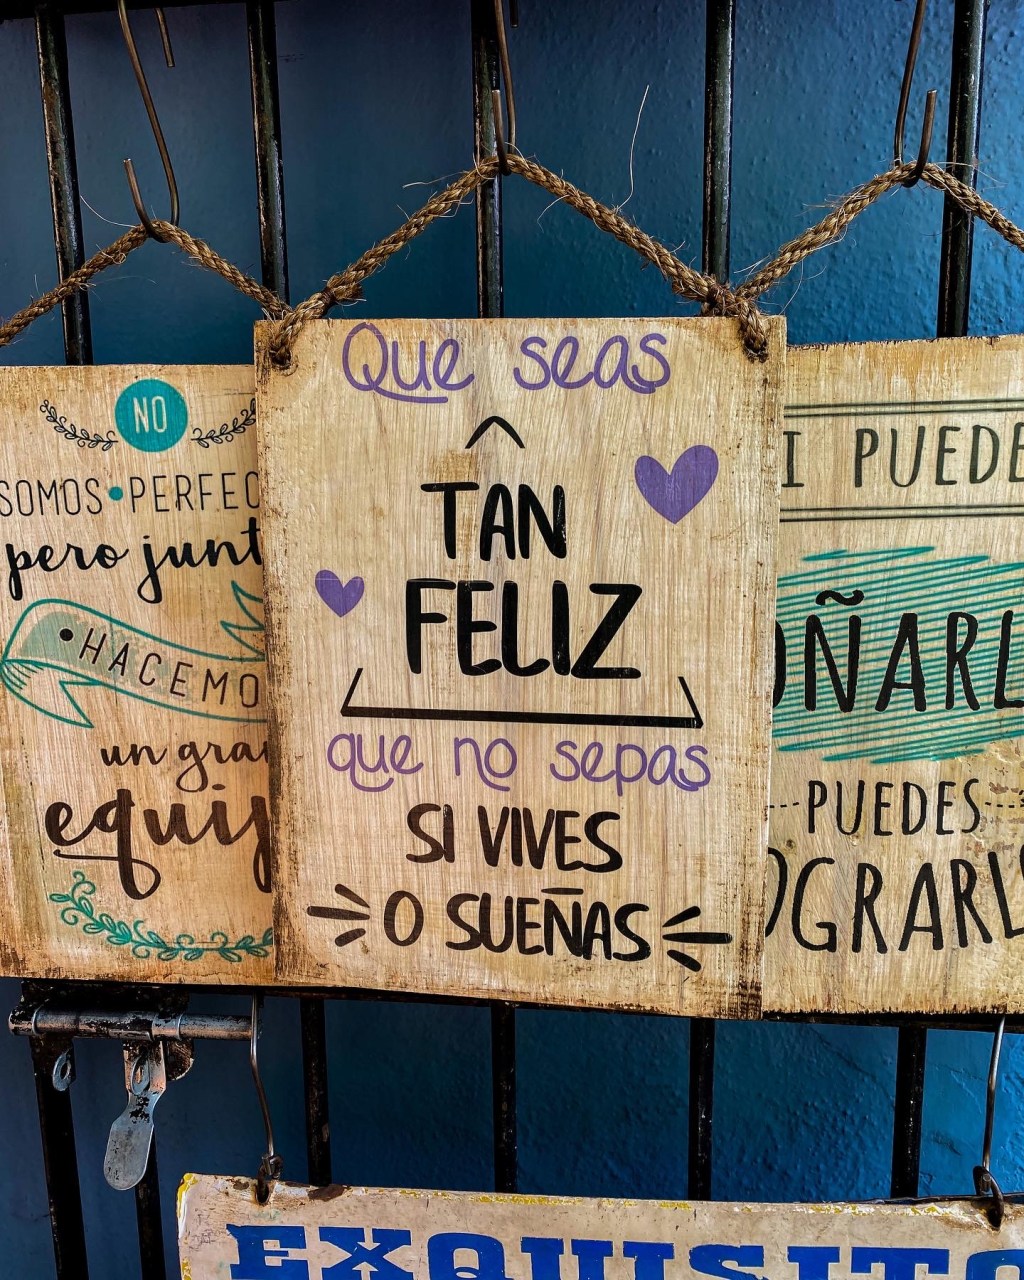 NO
SOMOS•PERFEC
pero junt
•HACEMO
un gra
equi
Que seas
TAN
FELIZ
que no sepas
SI VIVES
O SUEÑAS
I PUEDE
OÑARL
PUEDES
OGRARL
EXQUISITO